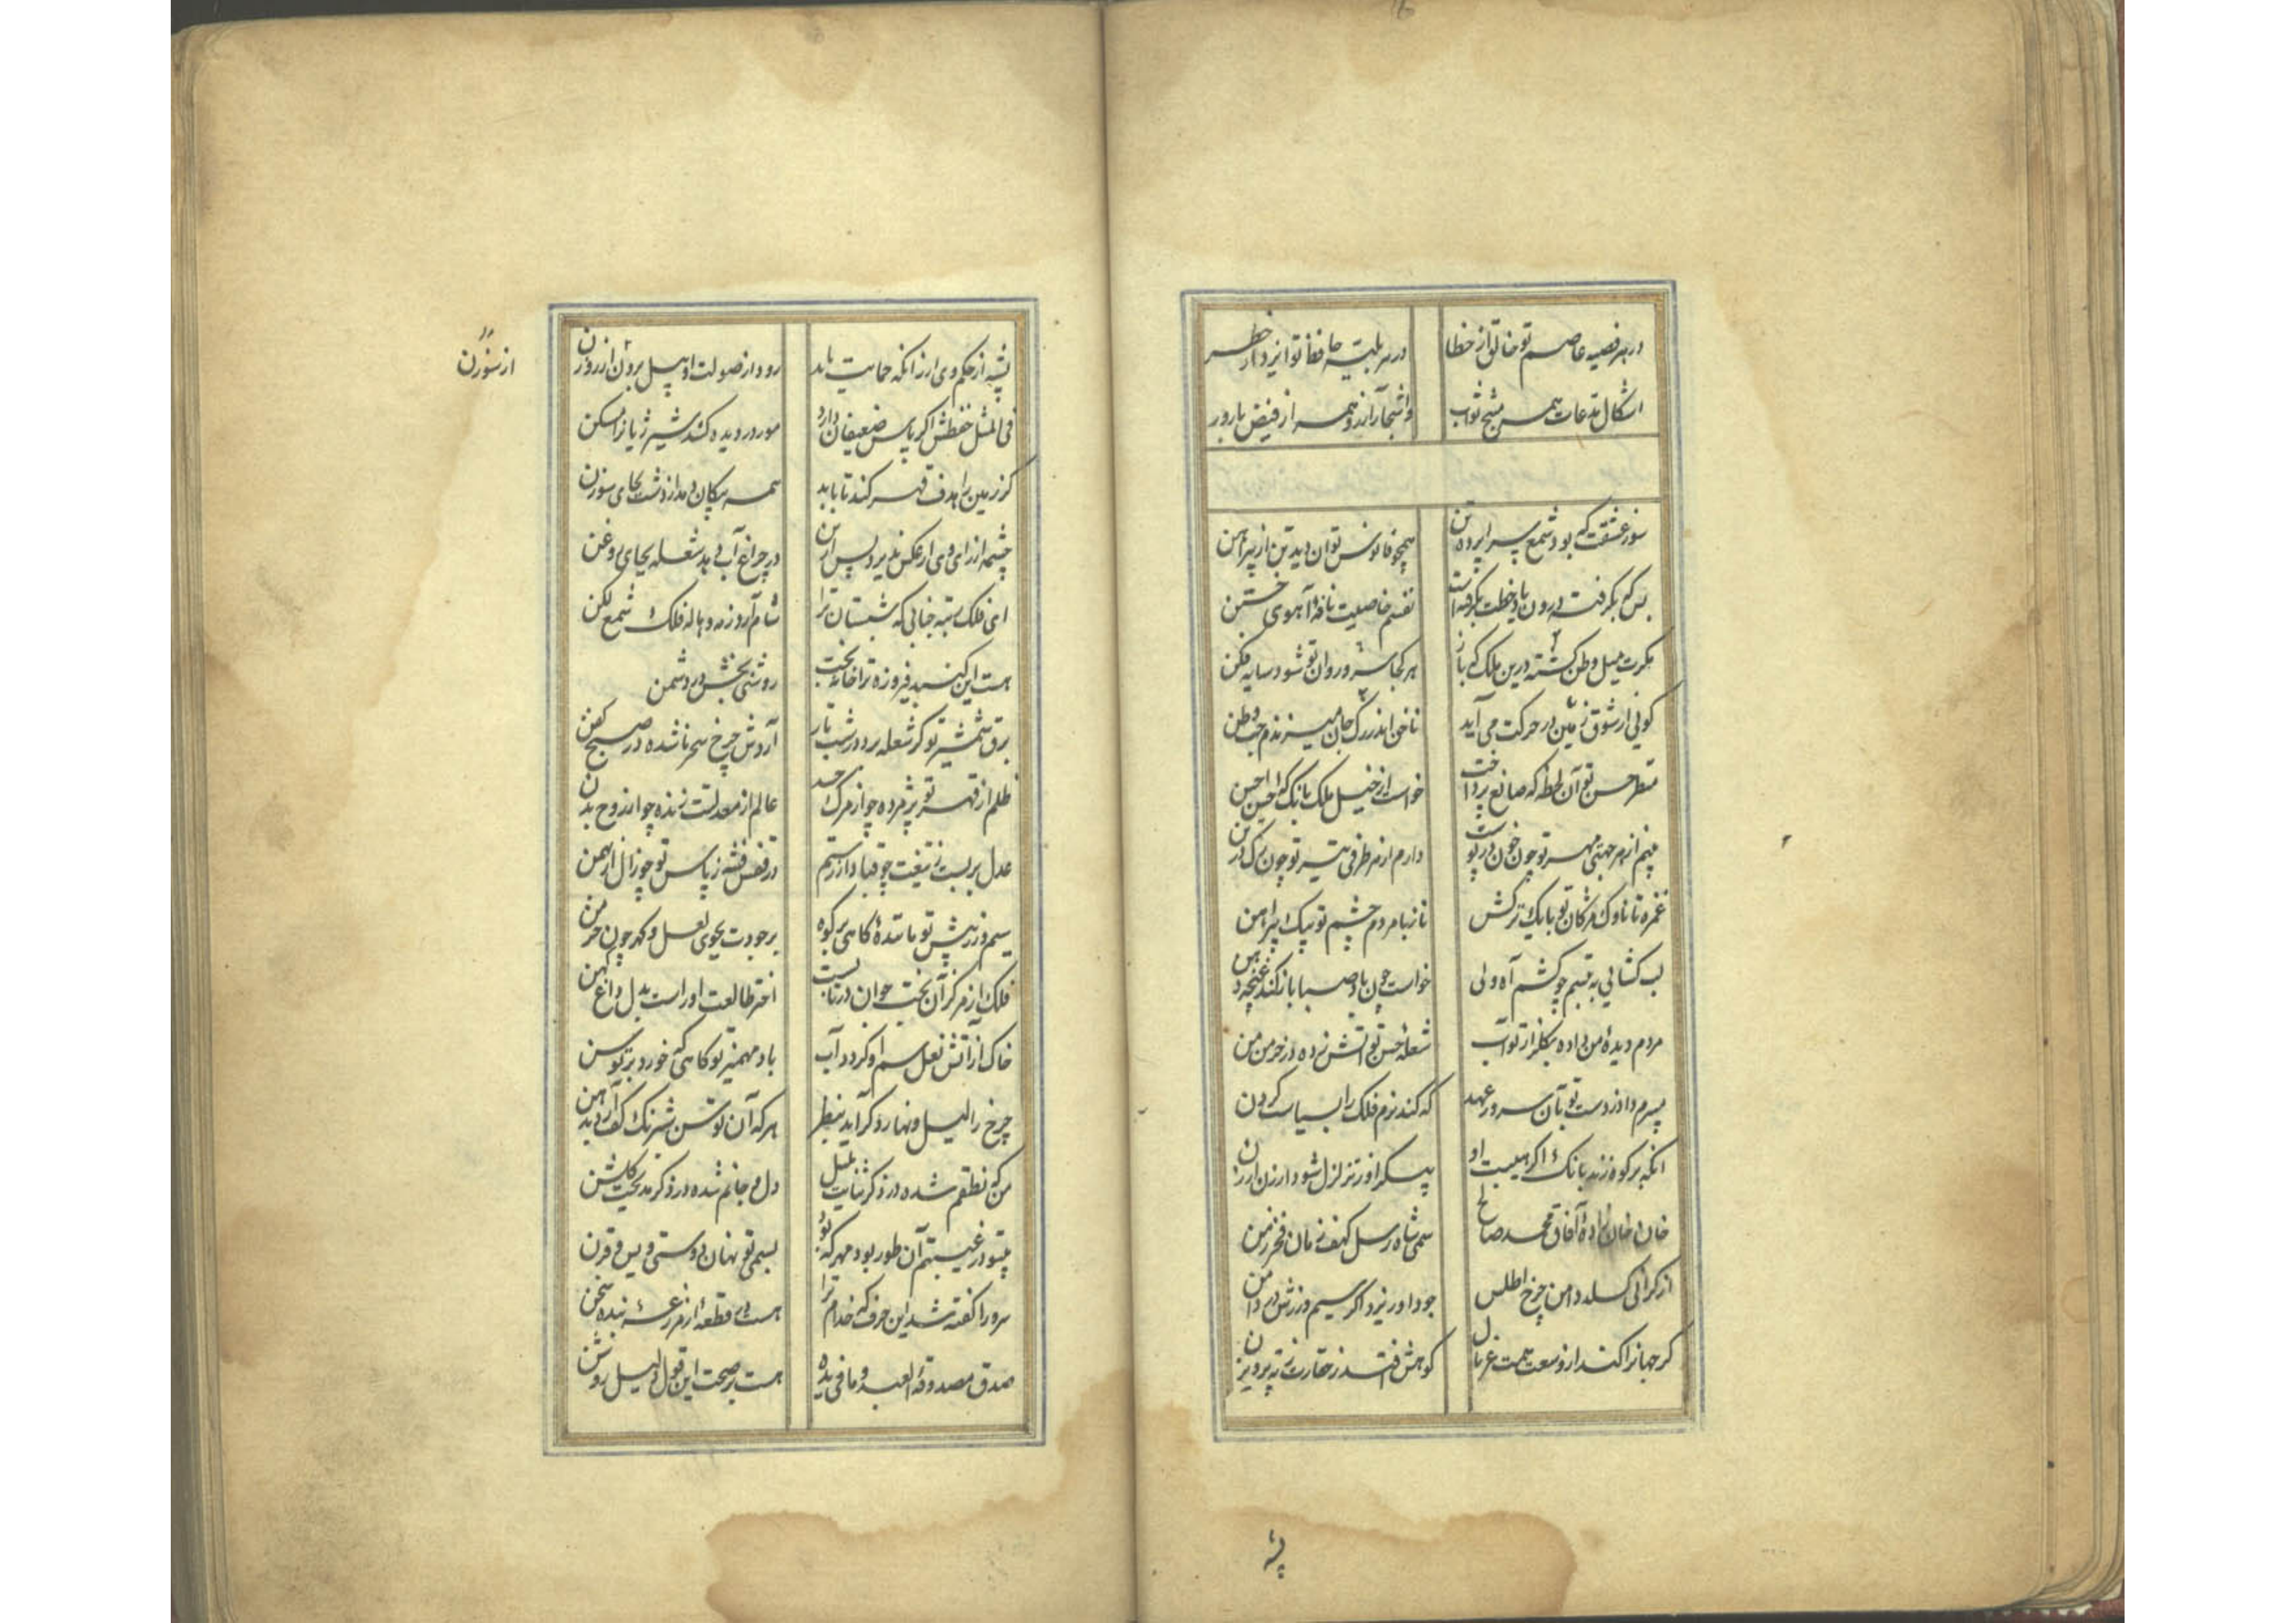 در هر قضیه عاصم تو خالق از خطا در هر بلیه حافظ تو ایزد از خطر
اشکال مدعات همه منتج ثواب و اشجار آرزو همه از فیض بارور
سوز عشقت که بود شمع سراپرده تن همچو فانوس توان دید تن از پیراهن
بس که بگرفت درون یاد خطت بگرفته است نفسم خاصیت نافه آهوی ختن
مکرت میل وطن گشته درین ملک که باز هر کجا سرو روان تو شود سایه فکن
گویی از شوق زمین در حرکت می آید تا خی اندر رگ جان میزندم حب وطن
منظر حسن تو آن لحظه که صانع پرداخت خواست از خیل ملک بانگ که احسن احسن
بینم از هر جهتی مهر تو چون خون در پوست دارم از هر طرفی تیر تو چون رگ در تن
غمزه تا ناوک مژگان تو با یک ترکش ناز با مردم چشم تو بیک پیراهن
لب گشایی به تبسم چو کشم آه ولی خواست چون باد صبا باز کند غنچه دهن
مردم دیده من داده بگلزار تو آب شعله حسن تو آتش زده در خرمن من
ببرم داد ز دست تو بآن سرور عهد که کند نرم فلک را بسیاست گردن
آنکه بر کوه زند بانگ اگر هیبت او پیکر او ز تزلزل شود ارزن ارزن
خان و خان زاده آفاق محمد صالح سمی شاه رسل کهف زمان فخر زمن
از گرانی گسلد دامن چرخ اطلس جود او ریزد اگر سیم و زرش در دامن
گر جهانرا کند از وسعت همت غربال کوهش افتد ز حقارت ز ته پرویزن
پشه
پشه از حکم وی ار زانکه حمایت یابد رود از صولت او پیل برون از روزن
از سوزن
فی المثل حفظش اگر پاس ضعیفان دارد مور در دیده کند شیر ژیانرا مسکن
گر زمین را هدف قهر کند تا بابد همه پیکان دمد از دشت بجای سوزن
چشمه از رای وی ار عکس پذیرد پس ازین در چراغ آب دهد شعله بجای روغن
ای فلک رتبه جنابی که شبستان ترا شام آرد ز مه و هاله فلک شمع لگن
هست این گنبد فیروزه ترا خانه بخت روشنی بخش در و شمن
برق شمشیر تو گر شعله برد در شب تار آردش چرخ سحر ناشده در صبح کفن
ظلم از قهر تو پژمرده چو از مرگ جسد عالم از معدلتت زنده چو از روح بدن
عدل بربست ز تیغت چو قباد از رستم در قفس فتنه ز پاس تو چو زال از بهمن
سیم و زر پیش تو ماننده کاهی بر کوه بر جودت بجوی لعل و گهر چون خرمن
فلک از مرکز آن بخت جوان در تابست اختر طالعت او راست بدل داغ کهن
خاک از آتش نعل سم او گردد آب باد مهمیز تو گاهی که خورد بر توسن
چرخ را لیل و نهار دگر آید بنظر هر که آن توسن شبرنگ کف آرد بدهن
من که نطقم شده در ذکر ثنایت بلبل دل و جانم شده در ذکر مدیحت گلشن
بتو در غیبتم آن طور بود مهر که بود بسمی تو نهان دوستی ویس قرن
سرورا گفته شد این حرف که خدام ترا هست در قطعه از مزرعه بنده سخن
صدق مصدوقه العبد و ما فی یده هست بر صحت این قول دلیل روشن